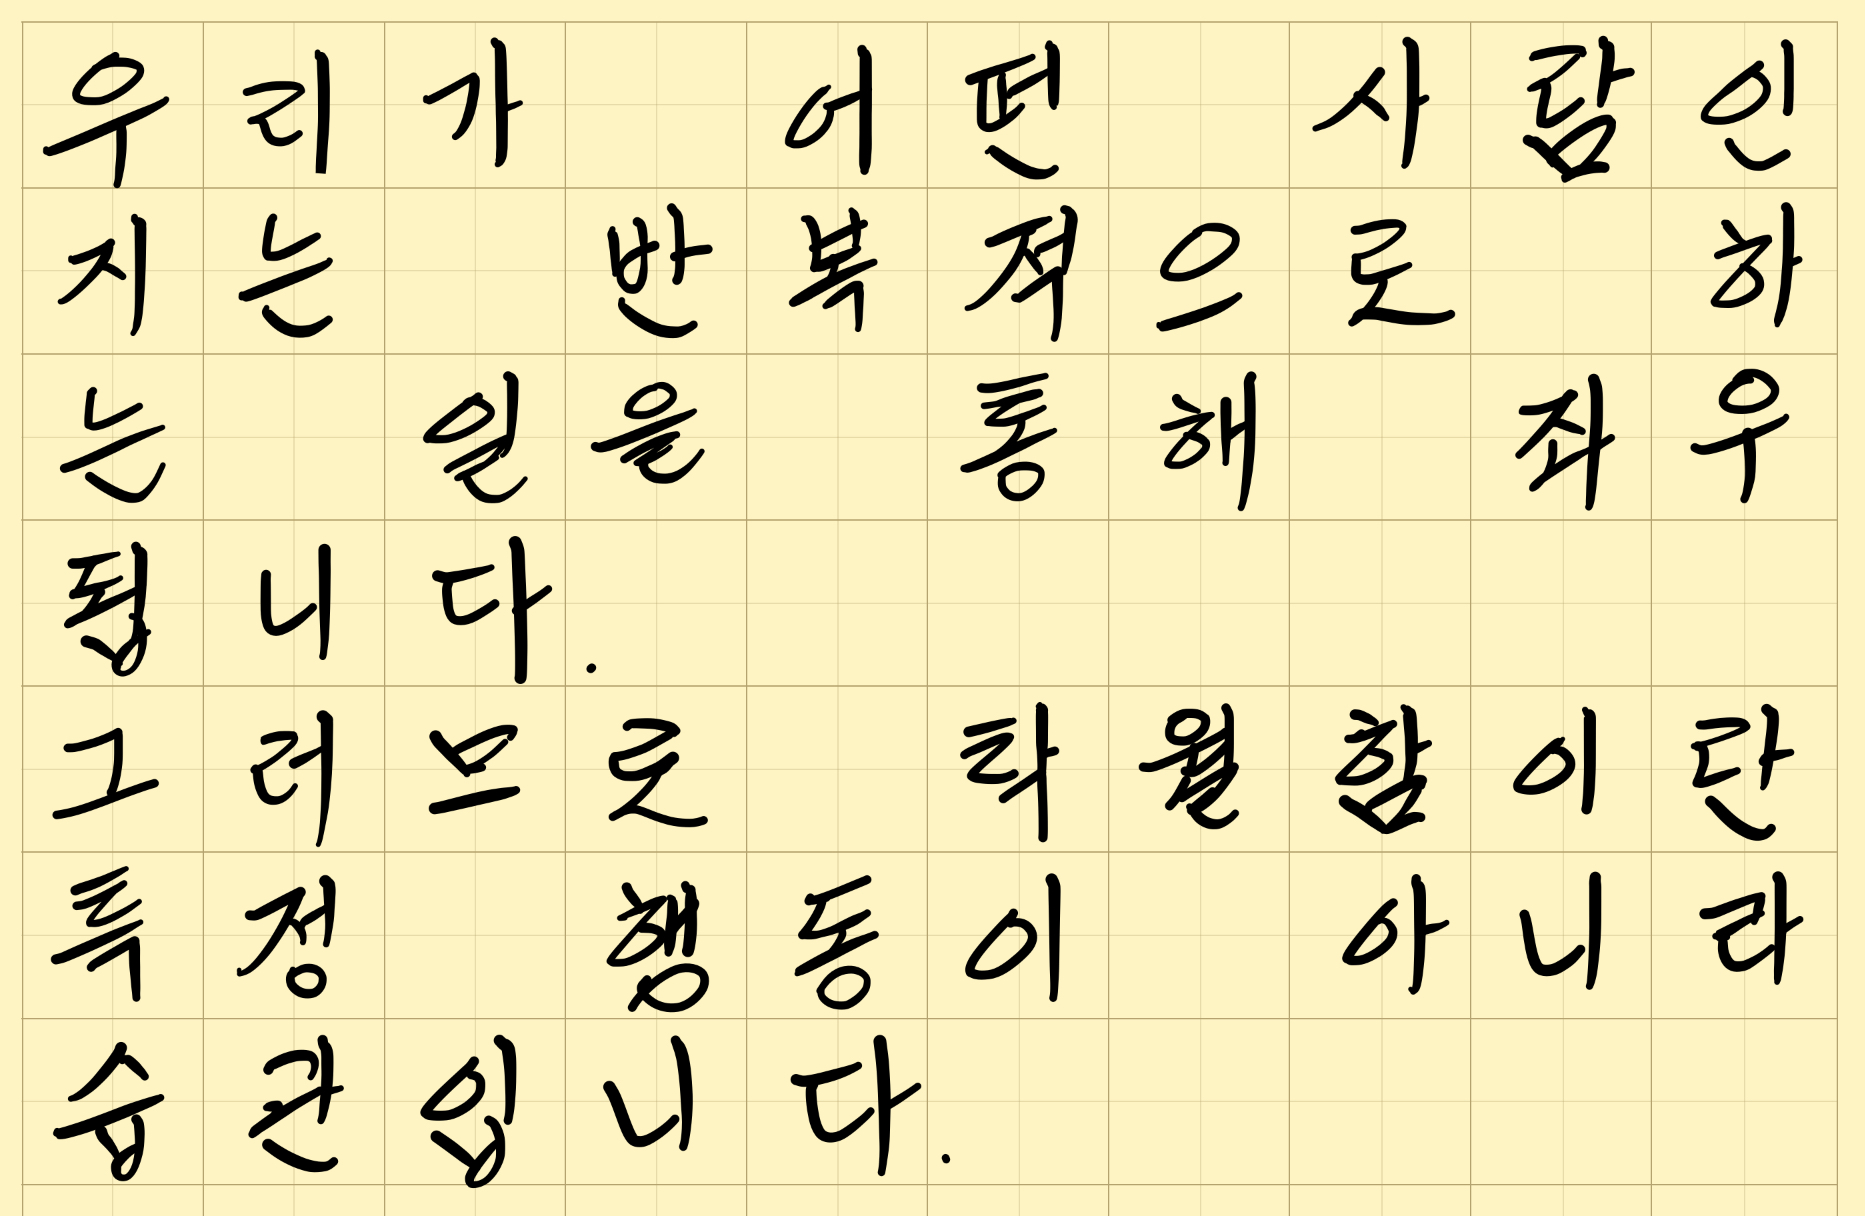 우리가 어떤 사람인
지는 반복적으로 하
는 일을 통해 좌우
됩니다.
그러므로 탁월함이란
특정 행동이 아니라
습관입니다.